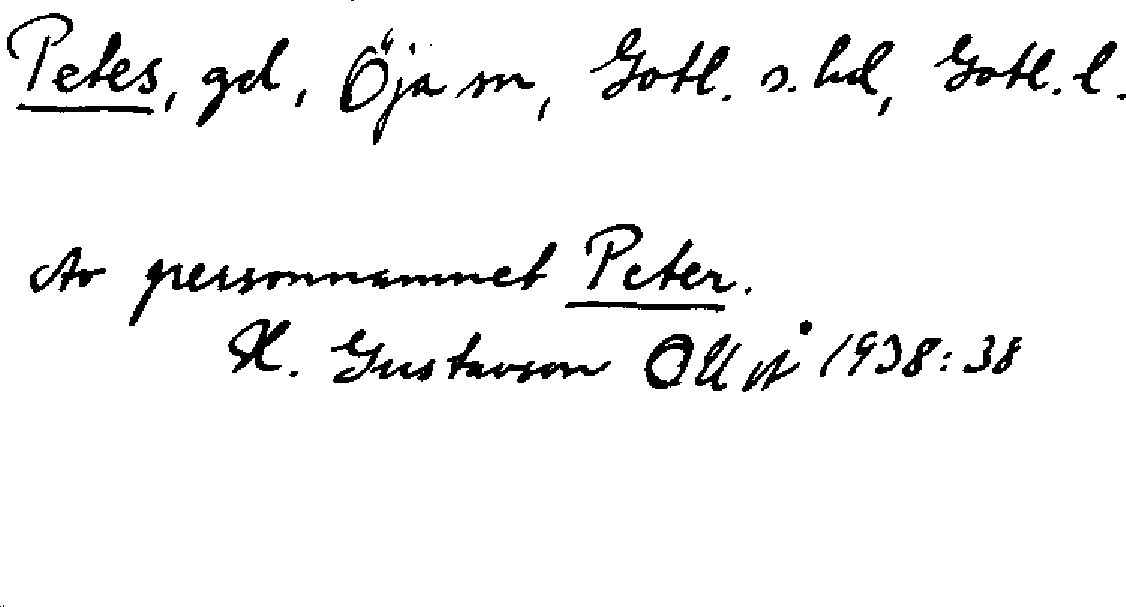 Petes, gd, Öja sn, Gotl. s. hd, Gotl. l.
Av personnamnet Peter.
H. Gustavson OUÅ 1938:38